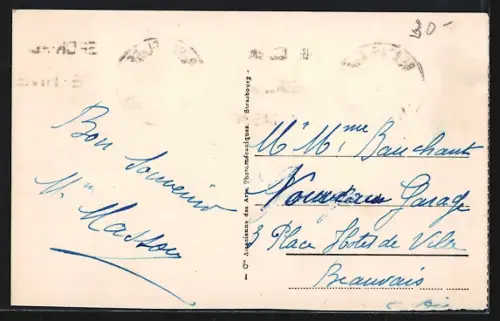 30-
Bon Souvenir
Mme Masson
— Cie Alsacienne des Arts Photomécaniques. - Strasbourg —
Mr Mme Bauchant
Nouveau Garage
3 Place Hotel de Ville
Beauvais
Oise